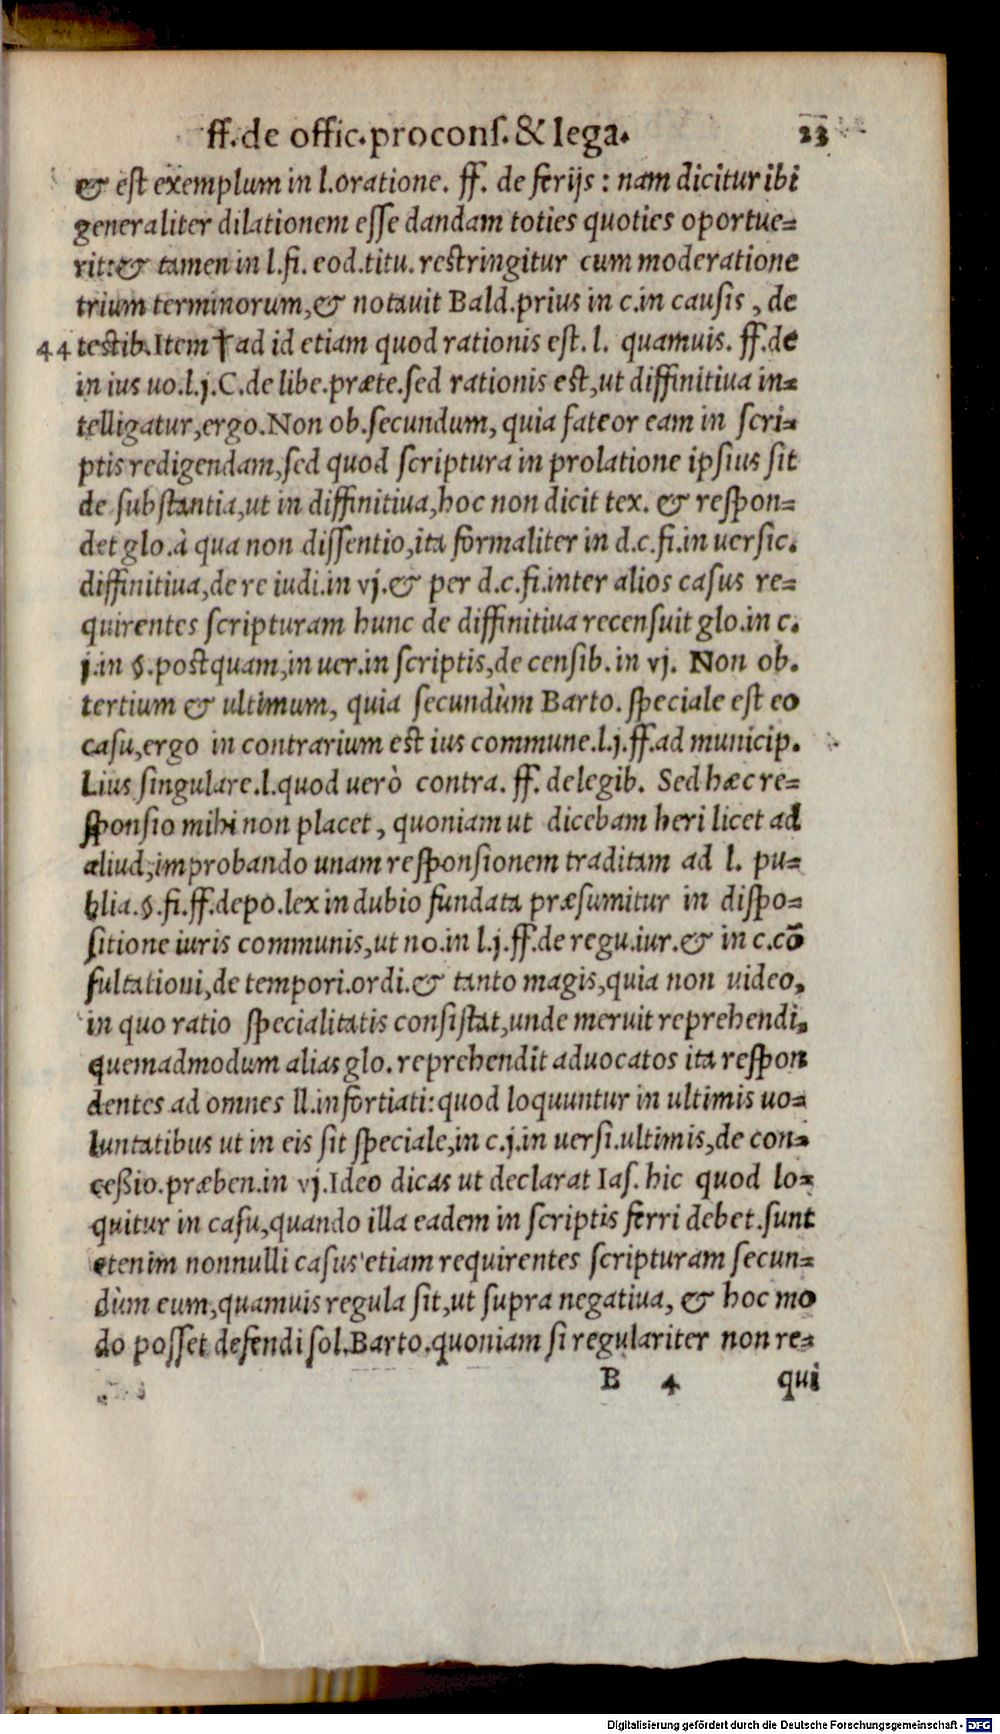 ff.de offic.procons.& lega. 23
& est exemplum in l.oratione. ff. de ferijs : nam dicitur ibi
generaliter dilationem esse dandam toties quoties oportue-
rit:& tamen in l.fi. eod.titu. restringitur cum moderatione
trium terminorum,& notauit Bald.prius in c.in causis , de
44 testib.Item † ad id etiam quod rationis est. l. quamuis. ff.de
in ius uo.l.j.C.de libe.præte.sed rationis est,ut diffinitiua in-
telligatur,ergo.Non ob.secundum, quia fateor eam in scri-
ptis redigendam,sed quod scriptura in prolatione ipsius sit
de substantia,ut in diffinitiua,hoc non dicit tex. & respon-
det glo.à qua non dissentio,ita formaliter in d.c.fi.in uersic.
diffinitiua,de re iudi.in vj.& per d.c.fi.inter alios casus re-
quirentes scripturam hunc de diffinitiua recensuit glo.in c.
j.in §.postquam,in uer.in scriptis,de censib. in vj. Non ob.
tertium & ultimum, quia secundùm Barto. speciale est eo
casu,ergo in contrarium est ius commune.l.j.ff.ad municip.
l.ius singulare.l.quod uerò contra. ff. de legib. Sed hæc re-
sponsio mihi non placet , quoniam ut dicebam heri licet ad
aliud,improbando unam responsionem traditam ad l. pu-
blia.§.fi.ff.depo.lex in dubio fundata præsumitur in dispo-
sitione iuris communis,ut no.in l.j.ff.de regu.iur.& in c.cõ
sultationi,de tempori.ordi.& tanto magis,quia non video,
in quo ratio specialitatis consistat,unde meruit reprehendi,
quemadmodum alias glo.reprehendit aduocatos ita respon
dentes ad omnes ll.infortiati:quod loquuntur in ultimis uo-
luntatibus ut in eis sit speciale,in c.j.in uersi.ultimis,de con-
ceßio.præben.in vj.Ideo dicas ut declarat Ias. hic quod lo-
quitur in casu,quando illa eadem in scriptis ferri debet.sunt
etenim nonnulli casus etiam requirentes scripturam secun-
dùm eum,quamuis regula sit,ut supra negatiua, & hoc mo
do posset defendi sol.Barto.quoniam si regulariter non re-
B 4 qui
Digitalisierung gefördert durch die Deutsche Forschungsgemeinschaft - DFG